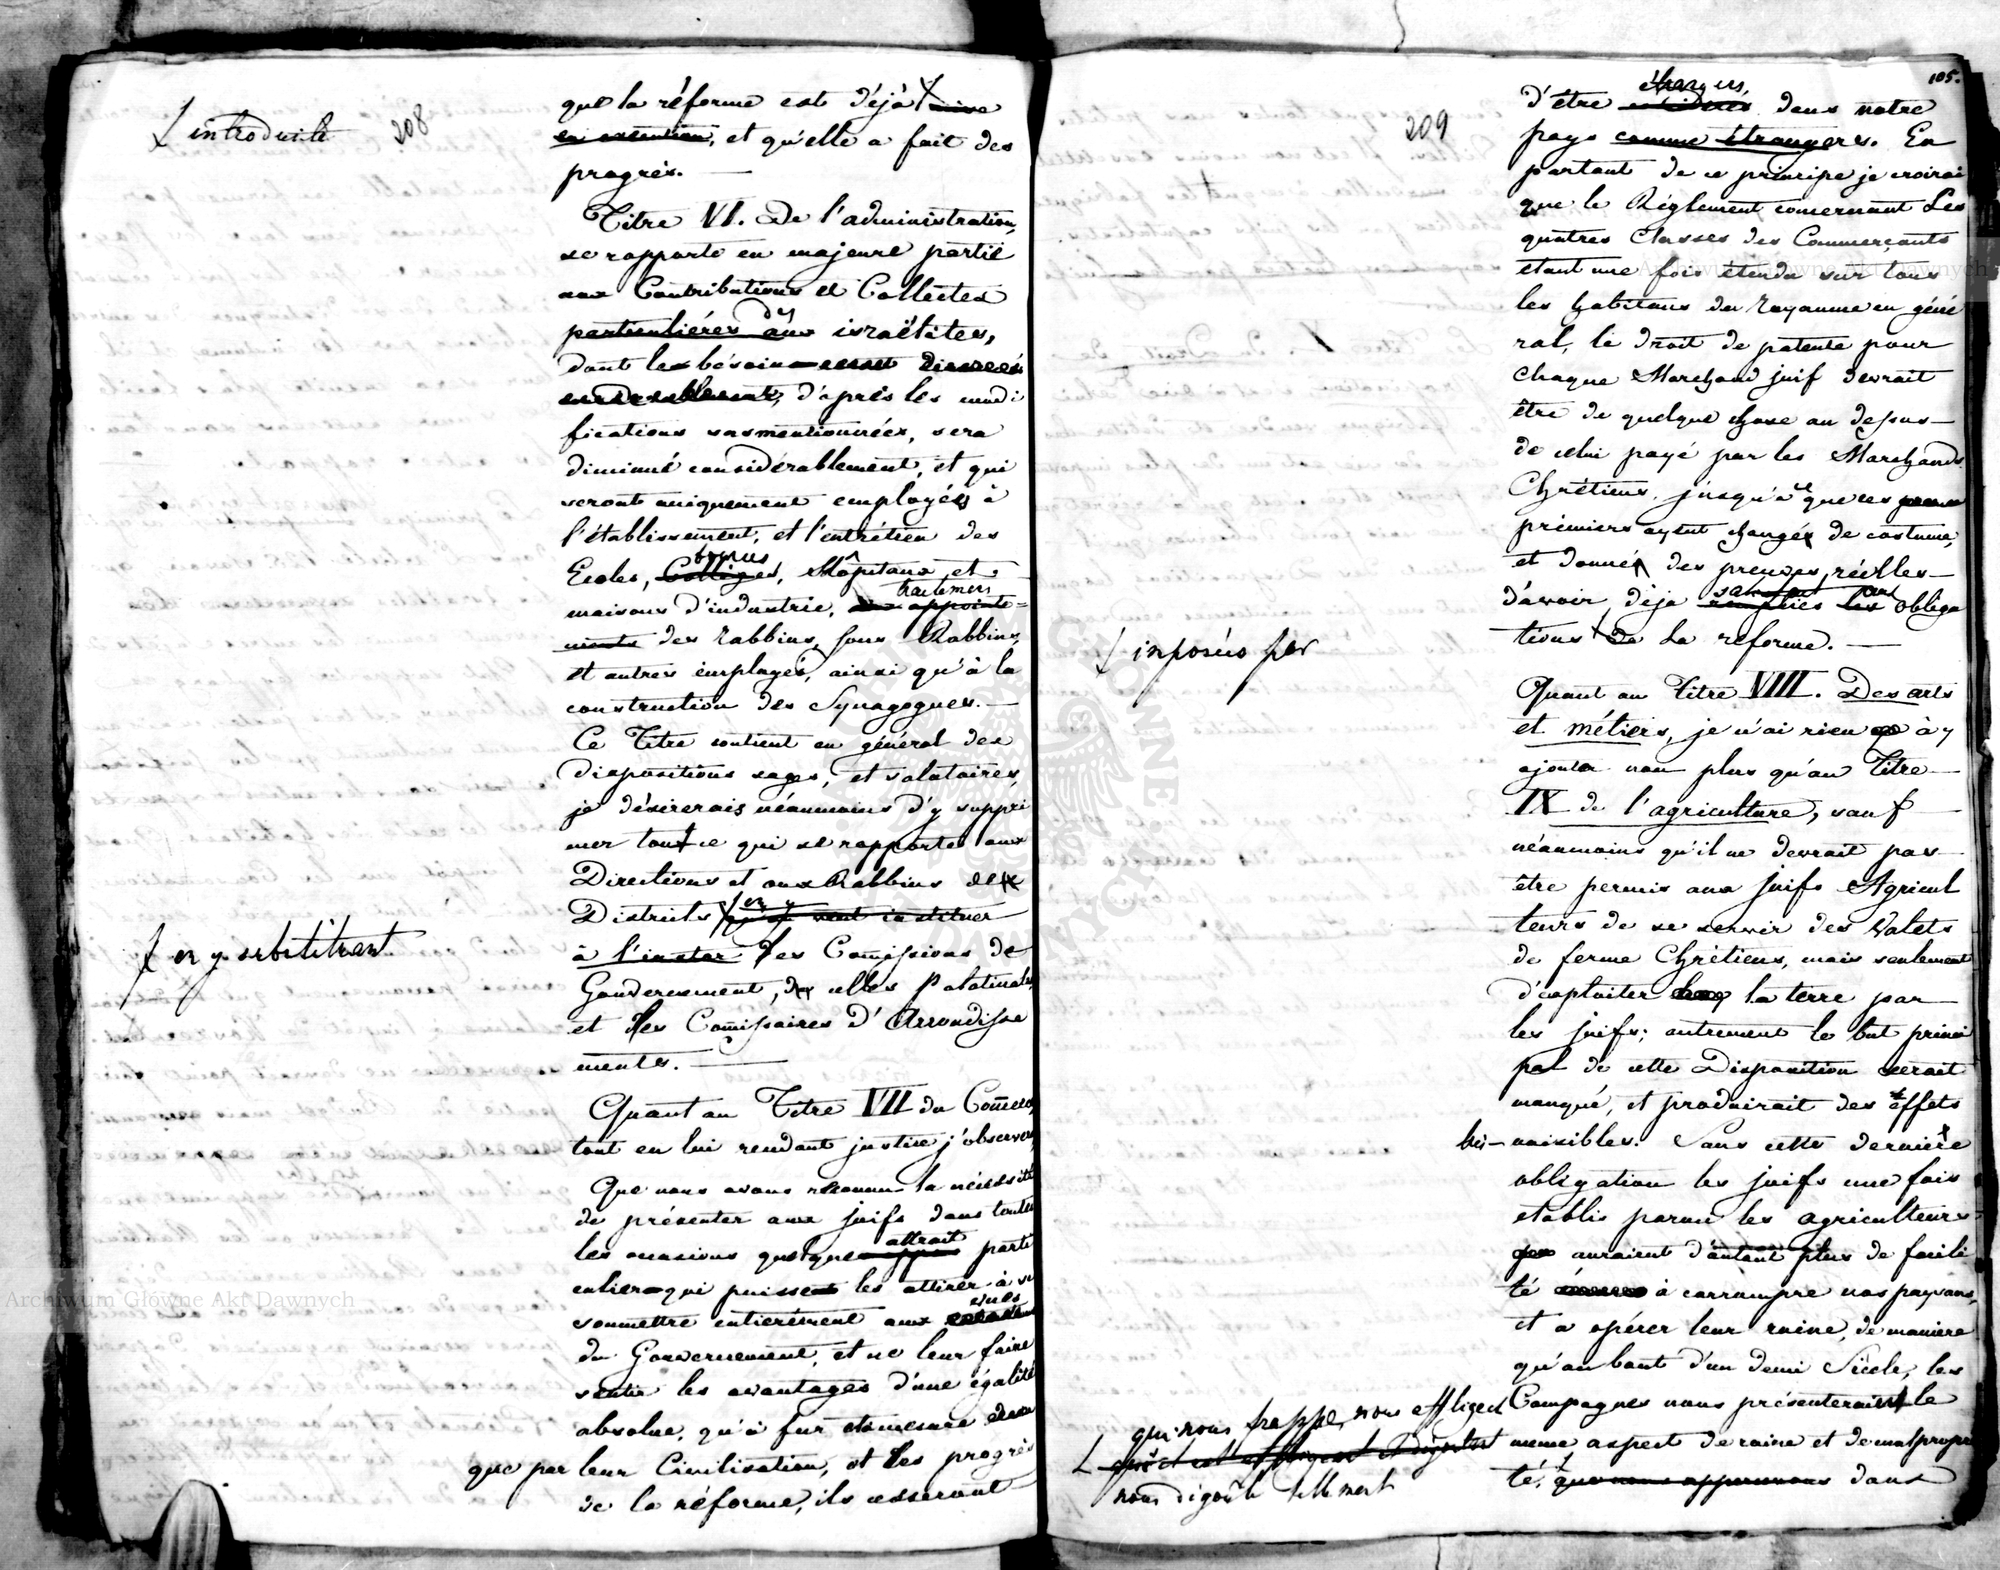 introduite
208
que la réforme est déjà mise
en exécution, et qu'elle a fait des
progrès. —
Titre VI. De l'administration,
se rapporte en majeure partie
aux Contributions et Collectes
particulières aux israëlites,
dont les bésoin seront
d'après les modi
fications susmentionnées, sera
diminué considérablement, et qui
seront uniquement employés à
l'établissement, et l'entrétien des
Ecoles, Collèges, Hôpitaux, et
maisons d'industrie, traitemens
aux appointe=
ments des rabbins, sous Rabbins,
et autres employés, ainsi qu'à la
construction des Synagogues. —
Ce Titre contient en général des
dispositions sages, et salutaires,
je désirerais néanmoins d'y suppri
mer tout ce qui se rapporte aux
Directions et aux Rabbins de
Districts qu'on veut instituer
en y substituant
à l'instar des Comissions de
Gouvernement, de celles Palatinales,
et des Comissaires d'Arrondisse
ments. —
Quant au Titre VII du Comerce,
tout en lui rendant justice j'observe,
Que nous avons reconnu la nécessité
de présenter aux juifs dans toutes
les occasions quelque attrait parti
culier qui puisse les attirer à se
soumettre entièrement aux vues
du Gouvernement, et ne leur faire
sentir les avantages d'une égalité
absolue, qu'à fur et mesure
que par leur Civilisation, et les progrès
de la réforme, ils cesseront
105.
209
d'être étrangers dans notre
pays comme étrangers. En
partant de ce principe je croirai
que le Réglement concernant Les
quatres Classes des Commerçants
étant une fois étendu sur tous
les habitans du Royaume en géné
ral, le droit de patente pour
chaque Marchand juif devrait
être de quelque chose au dessus —
de celui payé par les Marchands
Chrétiens, jusqu'à ce que ces
prémiers ayent changé de costume,
et donné des preuves réelles —
d'avoir déja satisfait aux obliga
tions de la réforme. —
imposées par
Quant au Titre VIII. Des arts
et métiers, je n'ai rien à y
ajouter non plus qu'au Titre —
IX de l'agriculture, sauf —
néanmoins qu'il ne devrait pas —
être permis aux juifs Agricul
teurs de se servir des Valets
de ferme Chrétiens, mais seulement
d'exploiter la terre par —
les juifs; autrement le but princi
pal de cette Disposition serait
manqué, et produirait des effets
très — nuisibles. Sans cette dernière
obligation les juifs une fois
établis parmi les agriculteurs
auraient d'autant plus de facili
té à corrompre nos paysans,
et à opérer leur ruine, de manière
qu'au bout d'un demi Siècle, les
Campagnes nous présenteraient le
même aspect de ruine et de malpropre
té, que nous appercevons dans
qui nous frappe, nous affligent
et
nous dégoûte tellement